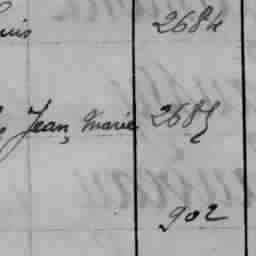 uis 2684
Jean, Marie 2685
902